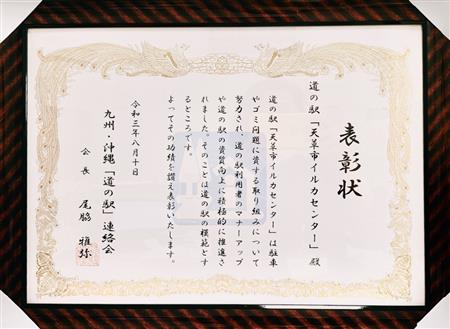 表彰状
道の駅「天草市イルカセンター」殿
道の駅「天草市イルカセンター」は駐車
やゴミ問題に資する取り組みについて
努力され、道の駅利用者のマナーアップ
や道の駅の資質向上に積極的に推進さ
れました。そのことは道の駅の模範とす
るところです。
よってその功績を讃え表彰いたします。
令和三年八月十日
九州・沖縄「道の駅」連絡会
会長 尾脇 雅弥